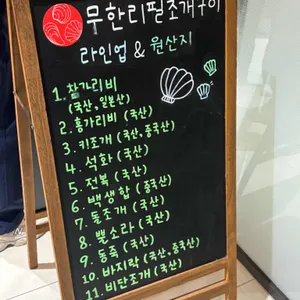 무한리필조개구이
라인업 & 원산지
1. 참가리비
(국산, 일본산)
2. 홍가리비 (국산)
3. 키조개 (국산, 중국산)
4. 석화 (국산)
5. 전복 (국산)
6. 백생합 (중국산)
7. 돌조개 (국산)
8. 뿔소라 (국산)
9. 동죽 (국산)
10. 바지락 (국산, 중국산)
11. 비단조개 (국산)